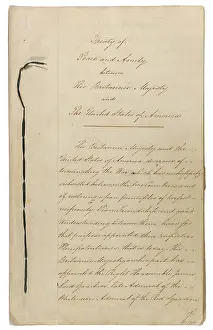 Treaty of
Peace and Amity
between
His Britannic Majesty
and
The United States of America
His Britannic Majesty and the
United States of America desirous of
terminating the War which has unhappily
subsisted between the two Countries, and
of restoring upon principles of perfect
reciprocity, Peace, Friendship, and good
Understanding between them, have for
that purpose appointed their respective
Plenipotentiaries, that is to say, His
Britannic Majesty on His part has
appointed the Right Honourable James
Lord Gambier, late Admiral of the
White now Admiral of the Red Squadron
of